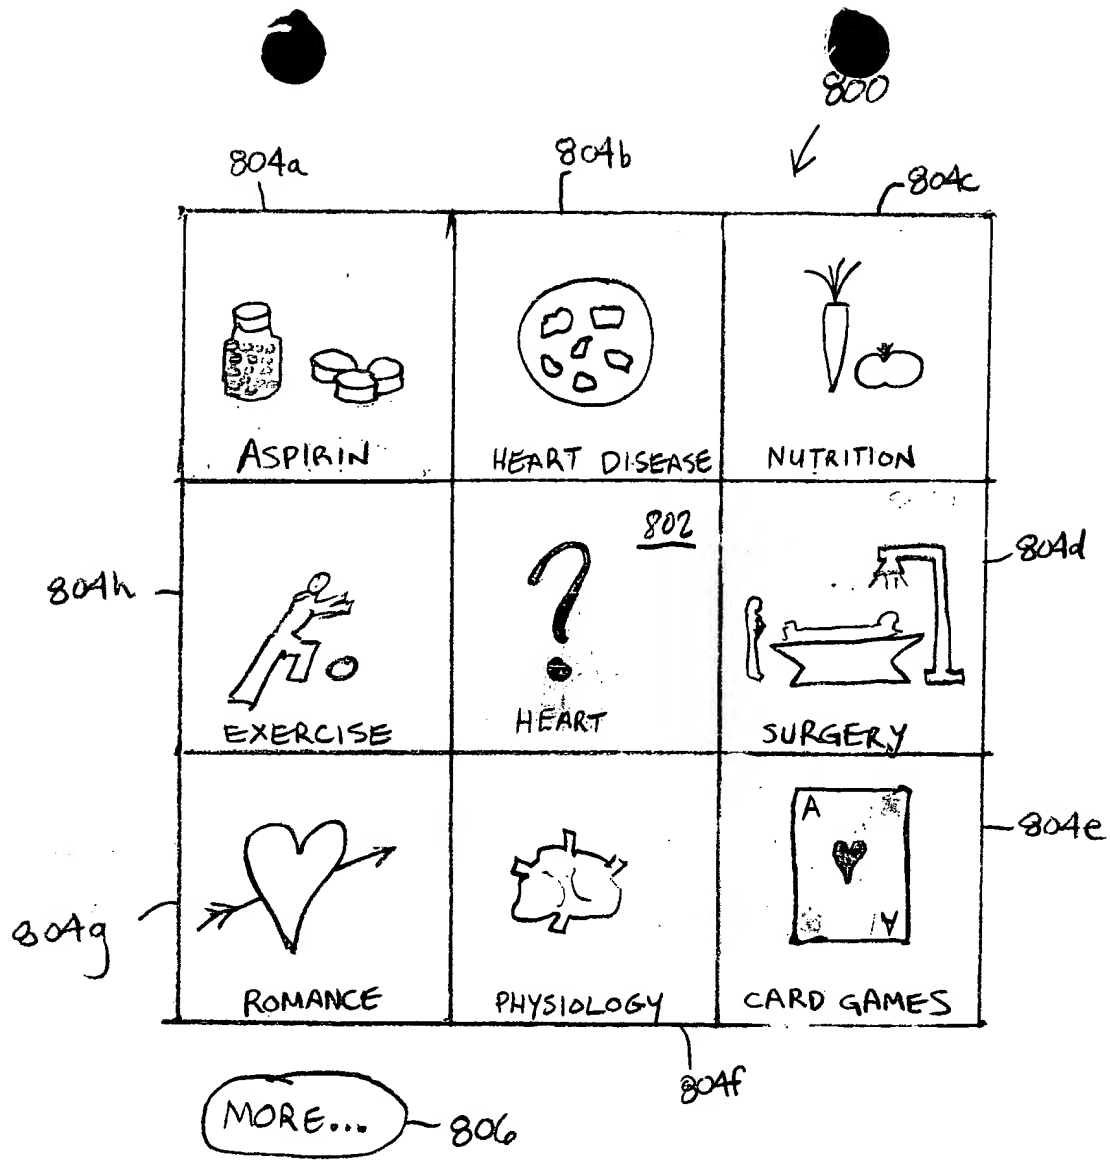 800
804a
804b
804c
ASPIRIN
HEART DISEASE
NUTRITION
802
804h
804d
EXERCISE
HEART
SURGERY
A
A
804e
804g
ROMANCE
PHYSIOLOGY
CARD GAMES
804f
MORE...
806